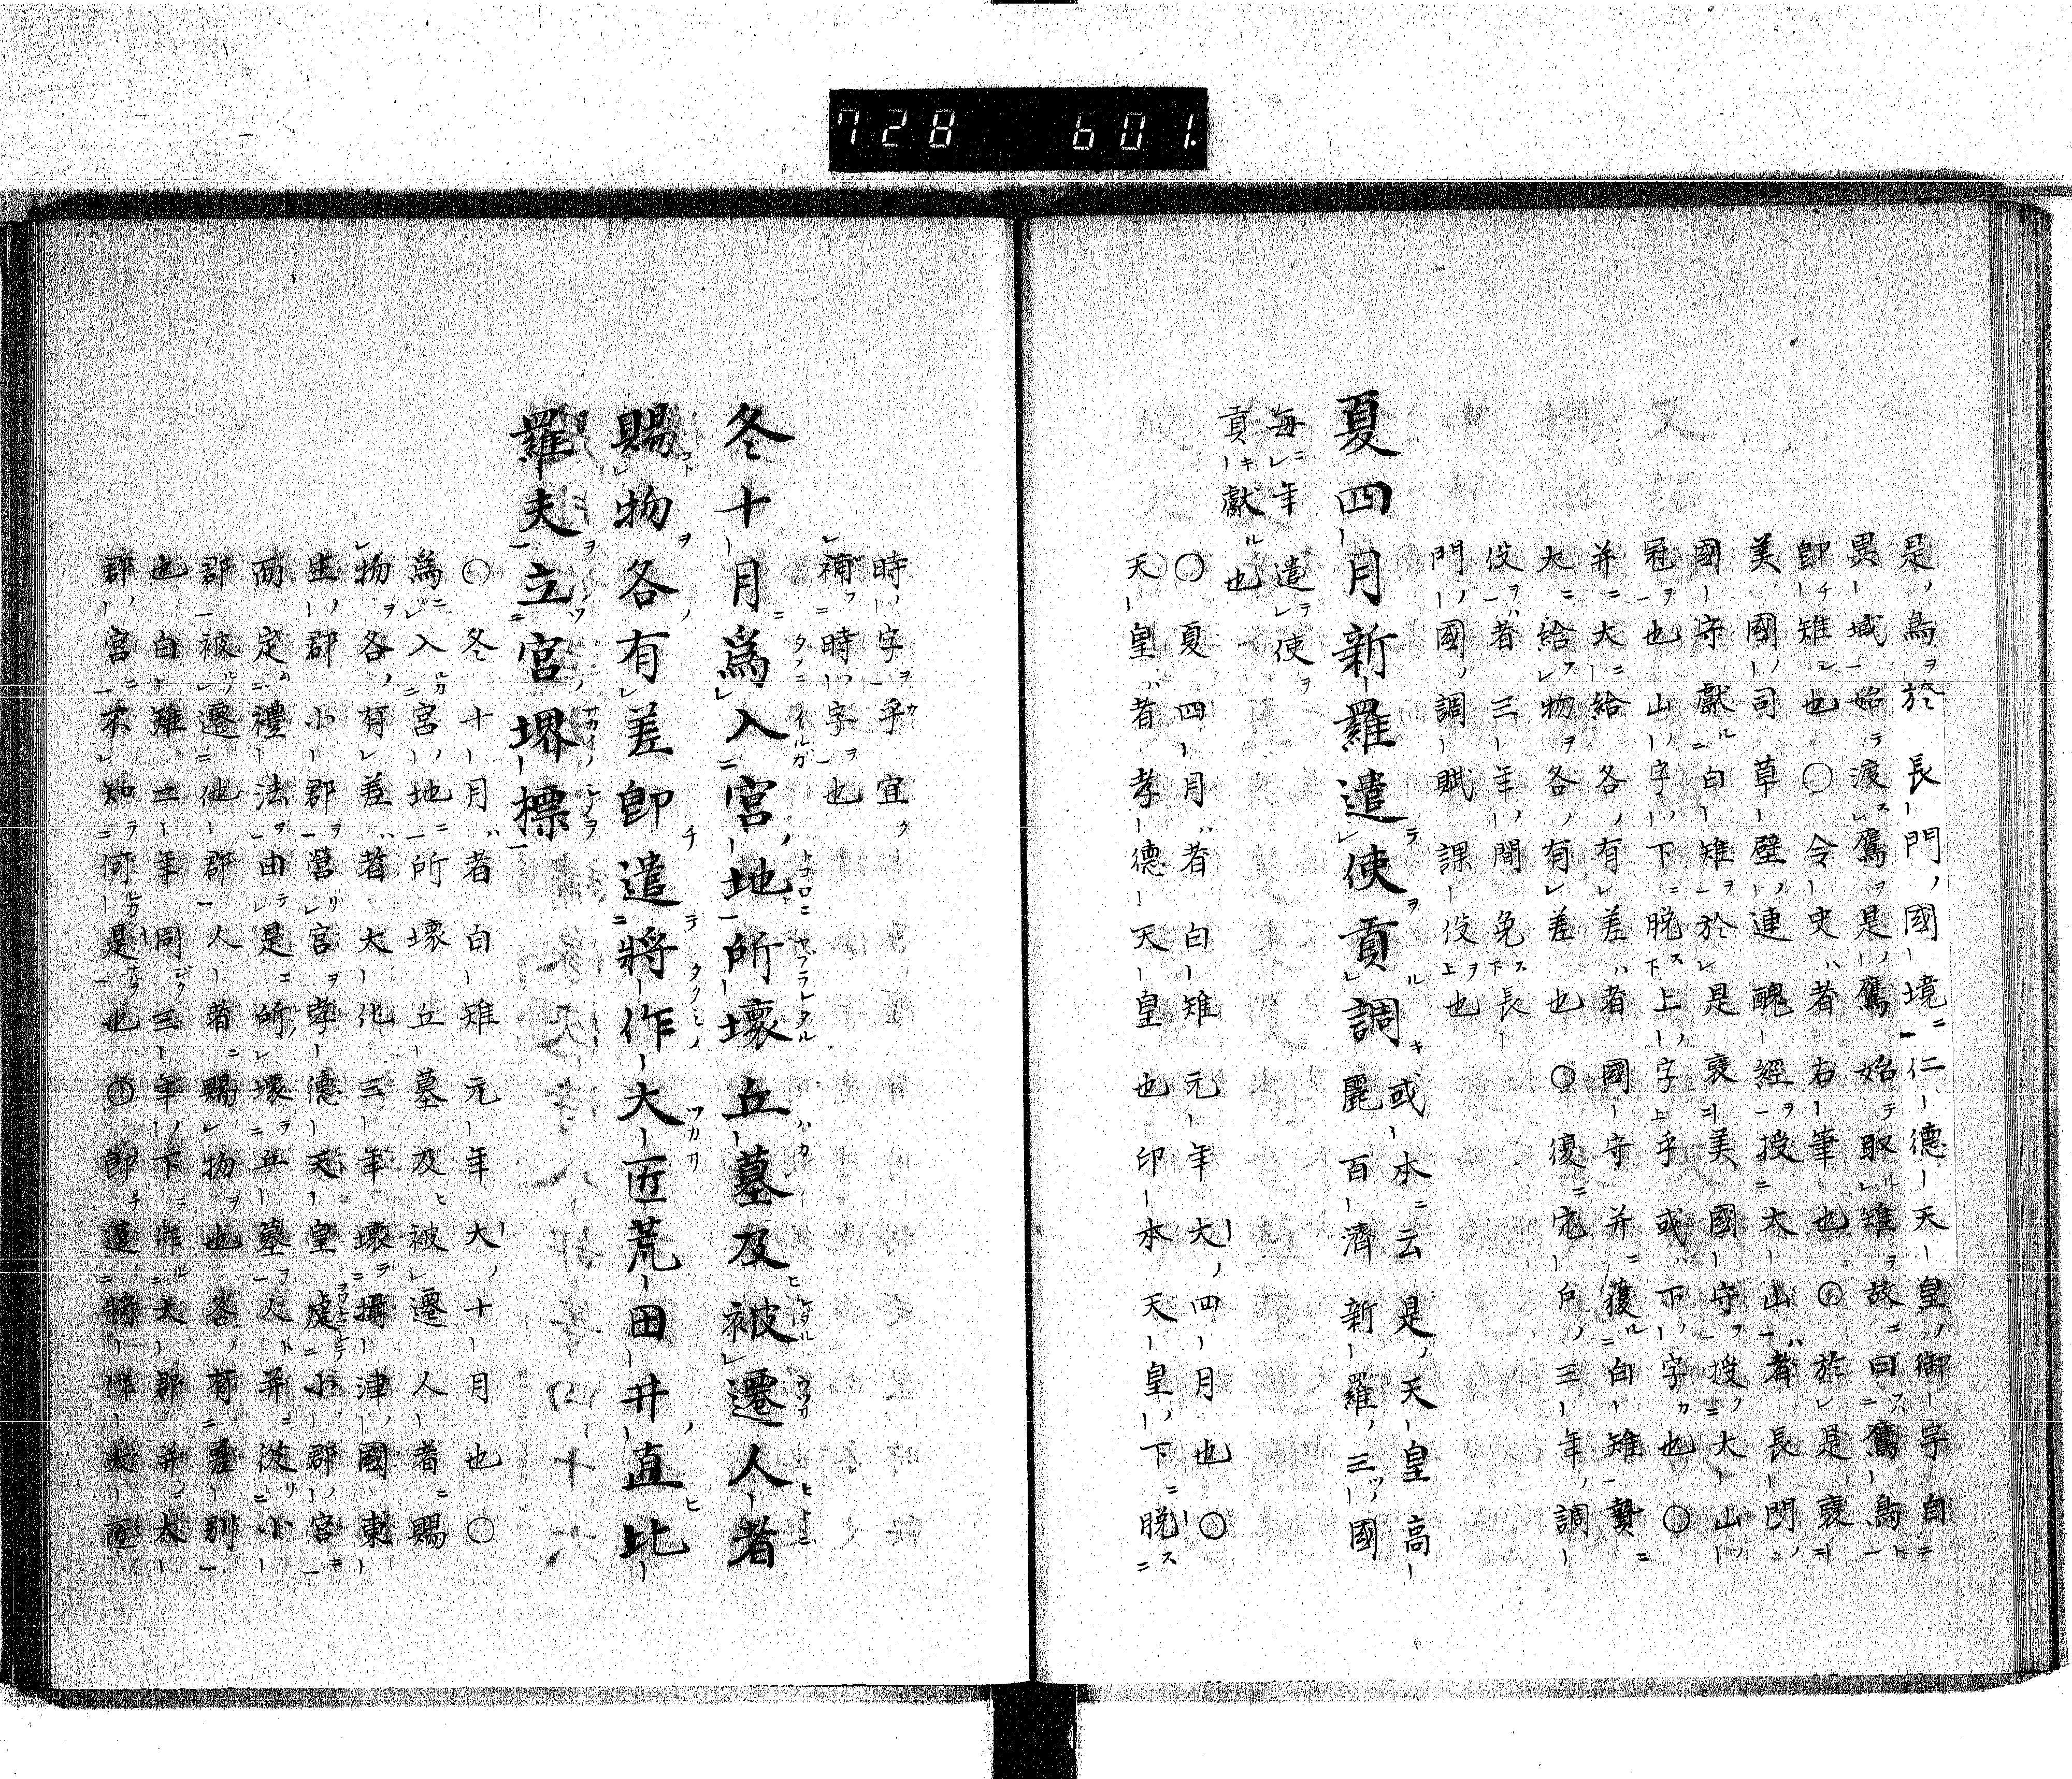 728 601.
是鳥於長門國境仁德天皇御宇自
異域始渡鷹是鷹始取雉故曰鷹鳥
即雉也〇令史者右筆也〇於是褒
美國司草壁連醜經授大山者長門
國守獻白雉於是褒美國守授大山
冠也山字下脱上字乎或下字也〇
并大給各有差者國守并獲白雉贄
大給物各有差也〇復宂戶三年調
役者三年間免長
門國調賦課役也
夏四月新羅遣使貢調或本云是天皇高
麗百濟新羅三國
每年遣使
貢獻也
〇夏四月者白雉元年大四月也〇
天皇者孝德天皇也印本天皇下脱
時字乎宜
補時字也
冬十月爲入宮地所壞丘墓及被遷人者
賜物各有差卽遣將作大匠荒田井直比
羅夫立宮堺標
〇冬十月者白雉元年大十月也〇
爲入宮地所壞丘墓及被遷人者賜
物各有差者大化三年壞攝津國東
生郡小郡營宮孝德天皇處小郡宮
而定禮法由是所壞丘墓人并從小
郡被遷他郡人者賜物也各有差別
也白雉二年同三年下作大郡并大
郡宮不知何是也〇卽遣將作大匠